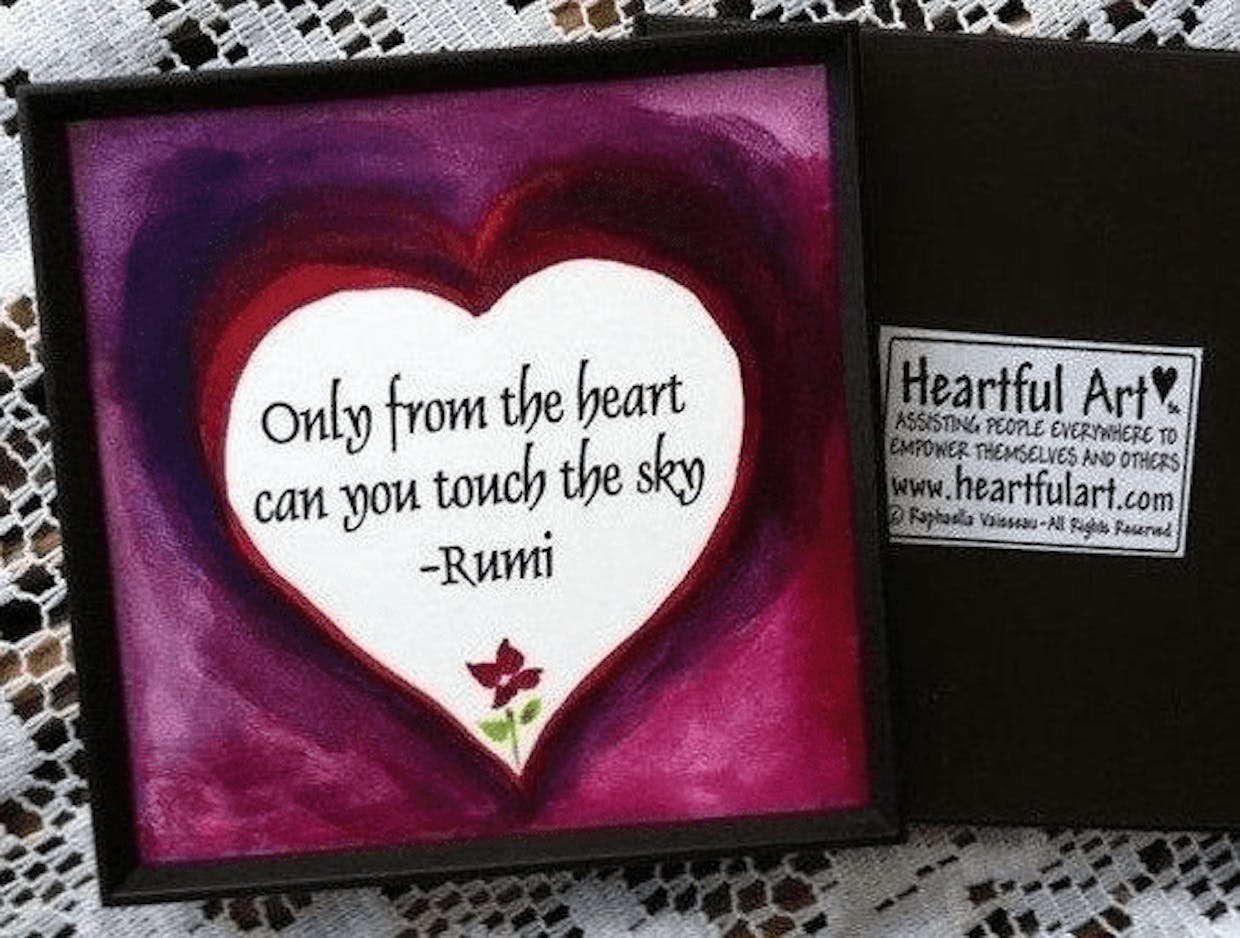 Only from the heart
can you touch the sky
-Rumi
Heartful Art
ASSISTING PEOPLE EVERYWHERE TO
EMPOWER THEMSELVES AND OTHERS
www.heartfulart.com
© Raphaella Vaisseau-All Rights Reserved